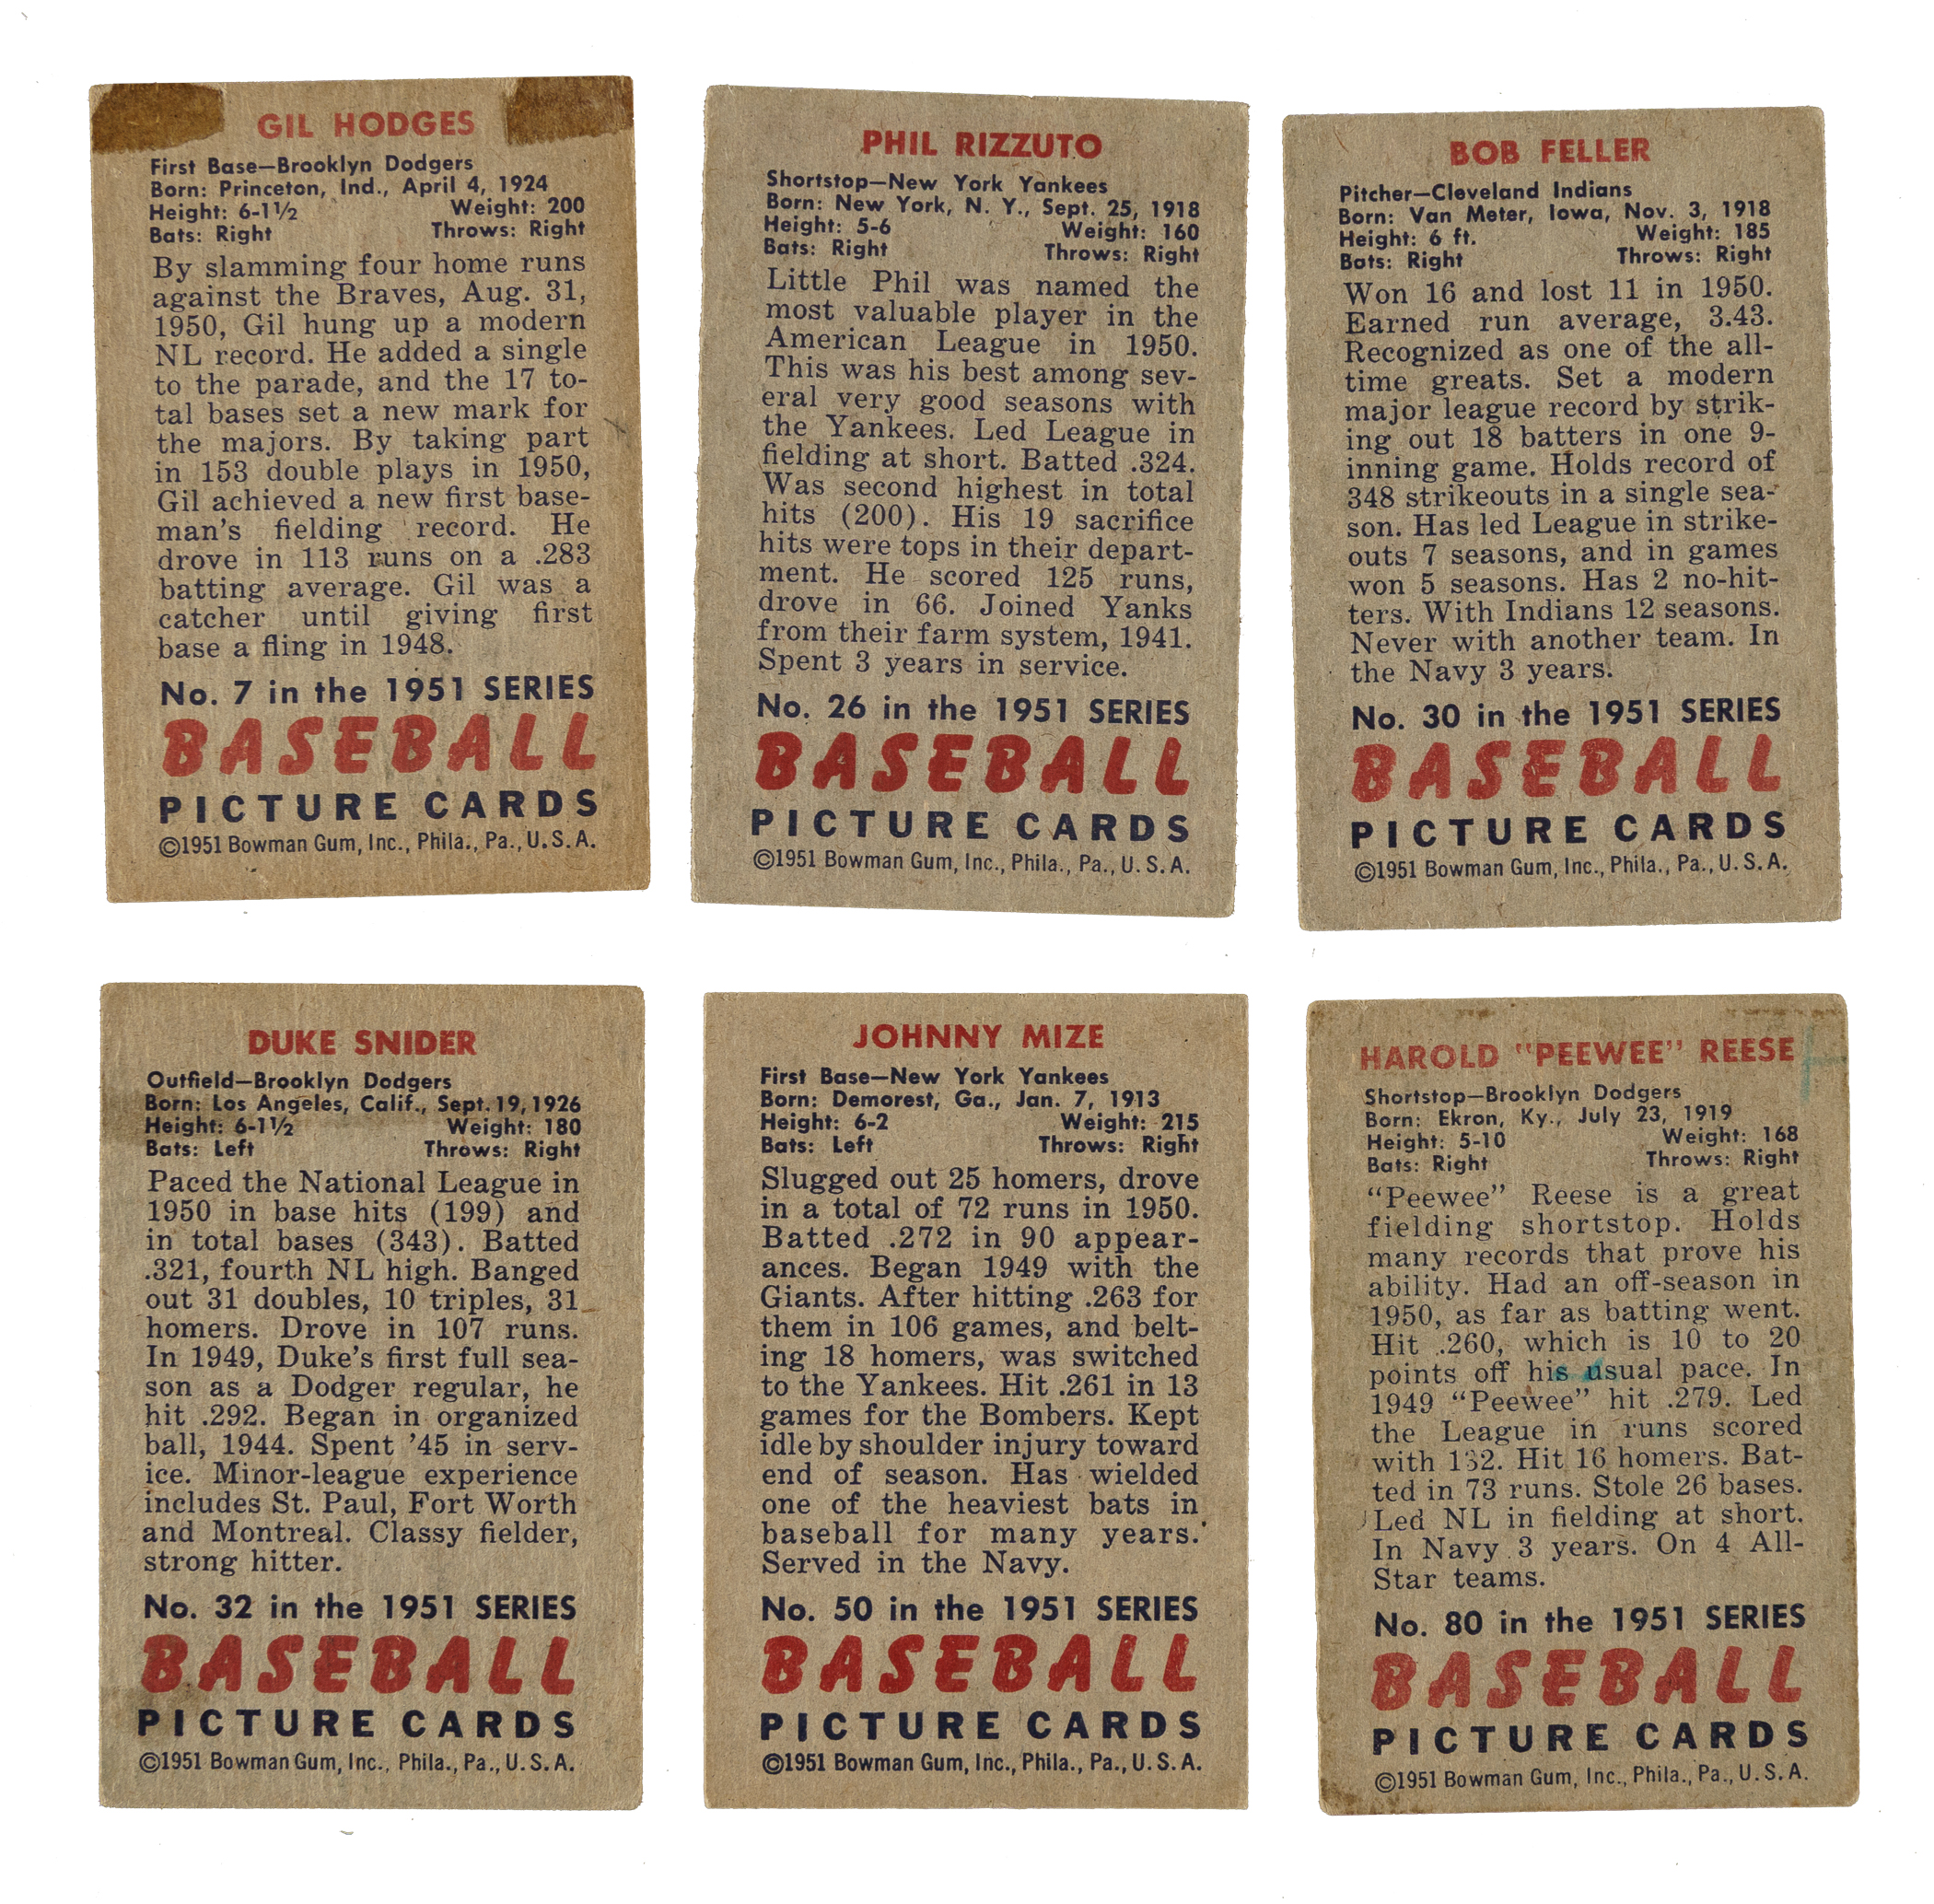 GIL HODGES
First Base—Brooklyn Dodgers
Born: Princeton, Ind., April 4, 1924
Height: 6-1½ Weight: 200
Bats: Right Throws: Right
By slamming four home runs
against the Braves, Aug. 31,
1950, Gil hung up a modern
NL record. He added a single
to the parade, and the 17 to-
tal bases set a new mark for
the majors. By taking part
in 153 double plays in 1950,
Gil achieved a new first base-
man's fielding record. He
drove in 113 runs on a .283
batting average. Gil was a
catcher until giving first
base a fling in 1948.
No. 7 in the 1951 SERIES
BASEBALL
PICTURE CARDS
©1951 Bowman Gum, Inc., Phila., Pa., U.S.A.
PHIL RIZZUTO
Shortstop—New York Yankees
Born: New York, N. Y., Sept. 25, 1918
Height: 5-6 Weight: 160
Bats: Right Throws: Right
Little Phil was named the
most valuable player in the
American League in 1950.
This was his best among sev-
eral very good seasons with
the Yankees. Led League in
fielding at short. Batted .324.
Was second highest in total
hits (200). His 19 sacrifice
hits were tops in their depart-
ment. He scored 125 runs,
drove in 66. Joined Yanks
from their farm system, 1941.
Spent 3 years in service.
No. 26 in the 1951 SERIES
BASEBALL
PICTURE CARDS
©1951 Bowman Gum, Inc., Phila., Pa., U.S.A.
BOB FELLER
Pitcher—Cleveland Indians
Born: Van Meter, Iowa, Nov. 3, 1918
Height: 6 ft. Weight: 185
Bats: Right Throws: Right
Won 16 and lost 11 in 1950.
Earned run average, 3.43.
Recognized as one of the all-
time greats. Set a modern
major league record by strik-
ing out 18 batters in one 9-
inning game. Holds record of
348 strikeouts in a single sea-
son. Has led League in strike-
outs 7 seasons, and in games
won 5 seasons. Has 2 no-hit-
ters. With Indians 12 seasons.
Never with another team. In
the Navy 3 years.
No. 30 in the 1951 SERIES
BASEBALL
PICTURE CARDS
©1951 Bowman Gum, Inc., Phila., Pa., U.S.A.
DUKE SNIDER
Outfield—Brooklyn Dodgers
Born: Los Angeles, Calif., Sept. 19, 1926
Height: 6-1½ Weight: 180
Bats: Left Throws: Right
Paced the National League in
1950 in base hits (199) and
in total bases (343). Batted
.321, fourth NL high. Banged
out 31 doubles, 10 triples, 31
homers. Drove in 107 runs.
In 1949, Duke's first full sea-
son as a Dodger regular, he
hit .292. Began in organized
ball, 1944. Spent '45 in serv-
ice. Minor-league experience
includes St. Paul, Fort Worth
and Montreal. Classy fielder,
strong hitter.
No. 32 in the 1951 SERIES
BASEBALL
PICTURE CARDS
©1951 Bowman Gum, Inc., Phila., Pa., U.S.A.
JOHNNY MIZE
First Base—New York Yankees
Born: Demorest, Ga., Jan. 7, 1913
Height: 6-2 Weight: 215
Bats: Left Throws: Right
Slugged out 25 homers, drove
in a total of 72 runs in 1950.
Batted .272 in 90 appear-
ances. Began 1949 with the
Giants. After hitting .263 for
them in 106 games, and belt-
ing 18 homers, was switched
to the Yankees. Hit .261 in 13
games for the Bombers. Kept
idle by shoulder injury toward
end of season. Has wielded
one of the heaviest bats in
baseball for many years.
Served in the Navy.
No. 50 in the 1951 SERIES
BASEBALL
PICTURE CARDS
©1951 Bowman Gum, Inc., Phila., Pa., U.S.A.
HAROLD "PEEWEE" REESE
Shortstop—Brooklyn Dodgers
Born: Ekron, Ky., July 23, 1919
Height: 5-10 Weight: 168
Bats: Right Throws: Right
"Peewee" Reese is a great
fielding shortstop. Holds
many records that prove his
ability. Had an off-season in
1950, as far as batting went.
Hit .260, which is 10 to 20
points off his usual pace. In
1949 "Peewee" hit .279. Led
the League in runs scored
with 132. Hit 16 homers. Bat-
ted in 73 runs. Stole 26 bases.
Led NL in fielding at short.
In Navy 3 years. On 4 All-
Star teams.
No. 80 in the 1951 SERIES
BASEBALL
PICTURE CARDS
©1951 Bowman Gum, Inc., Phila., Pa., U.S.A.